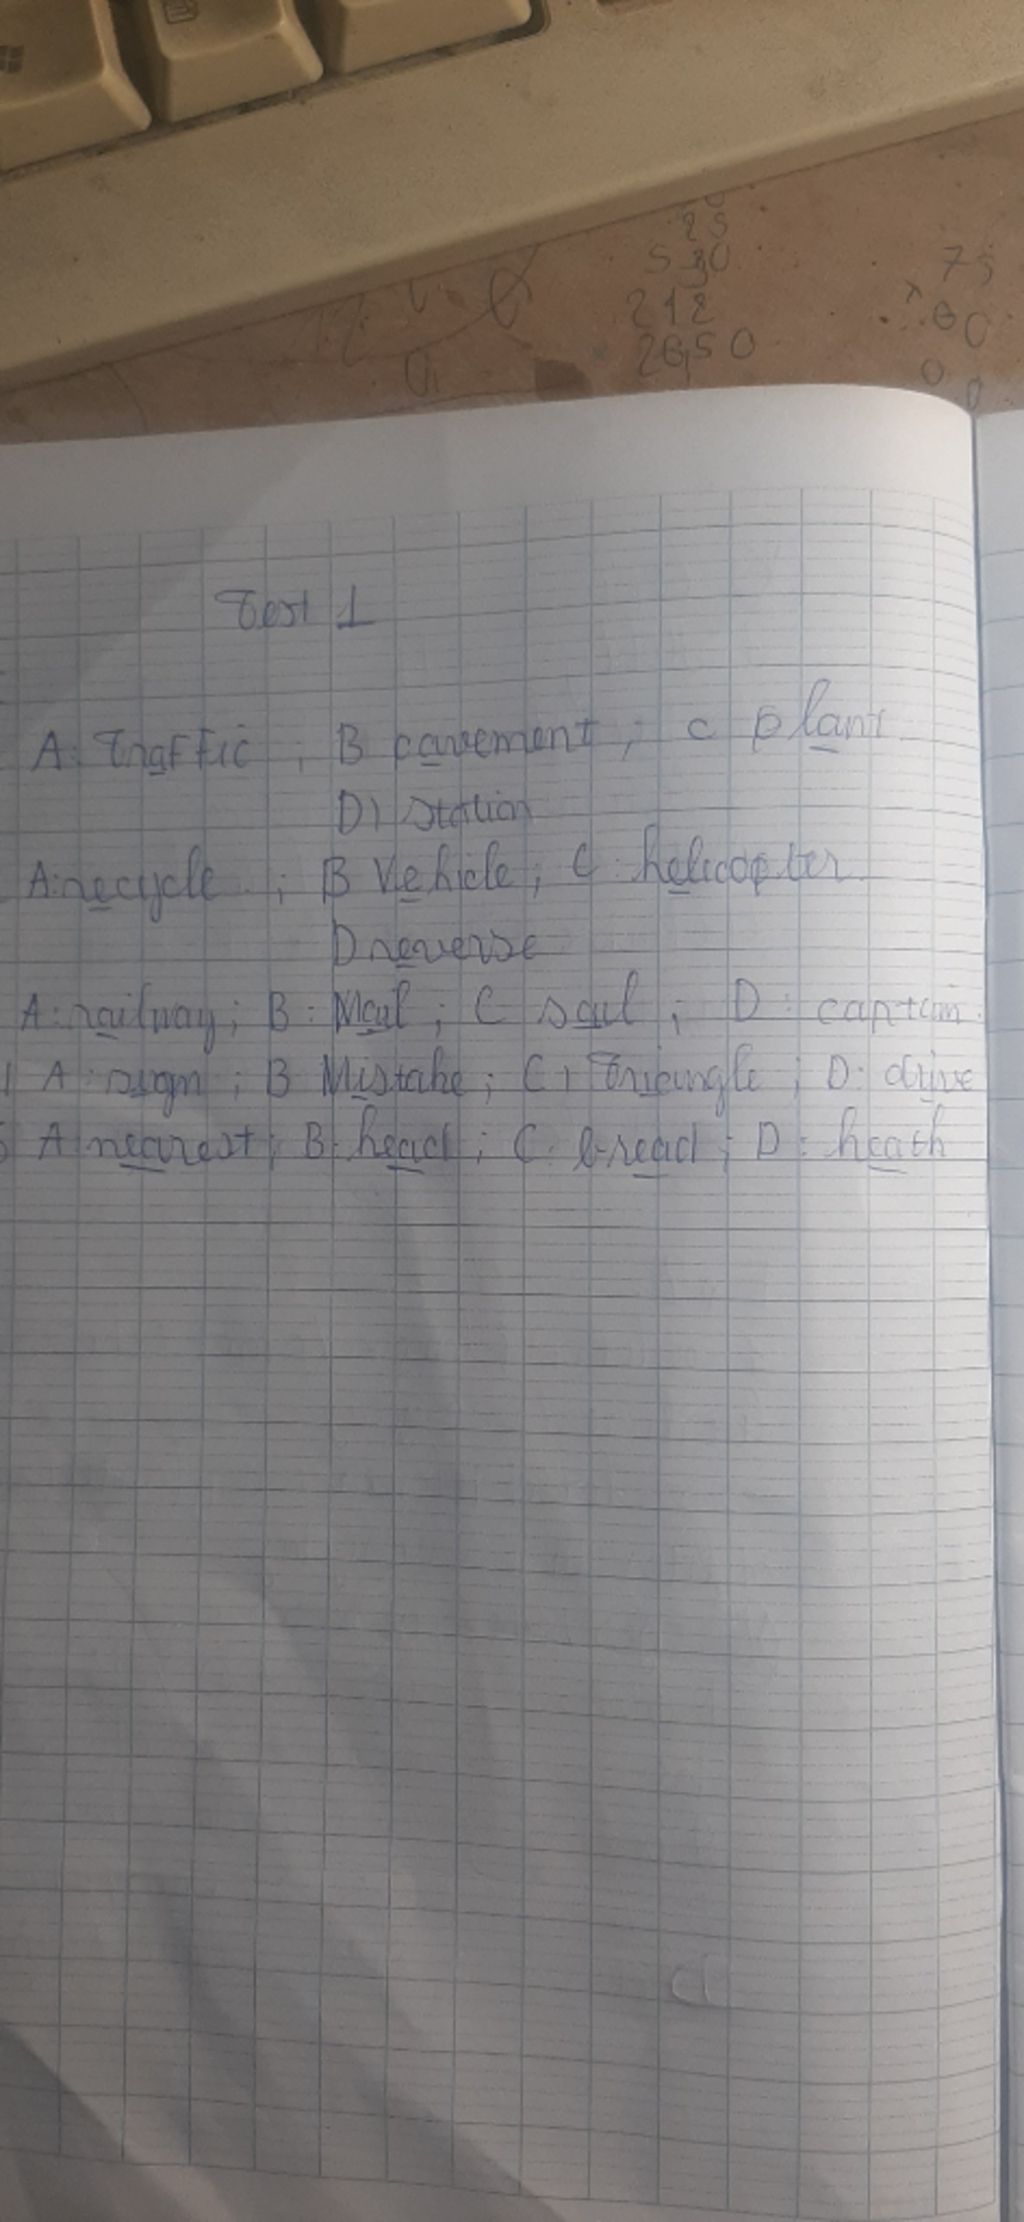 25
530
212
26,50
75
x 60
0 0
Test 1
A: Traffic ; B pavement ; C plant
D) station
A: recycle ; B Vehicle ; C: helicopter
D reverse
A: railway ; B: Mail ; C sail ; D: captain
A: sign ; B Mistake ; C) Triangle ; D: drive
A nearest ; B: head ; C: bread ; D: heath